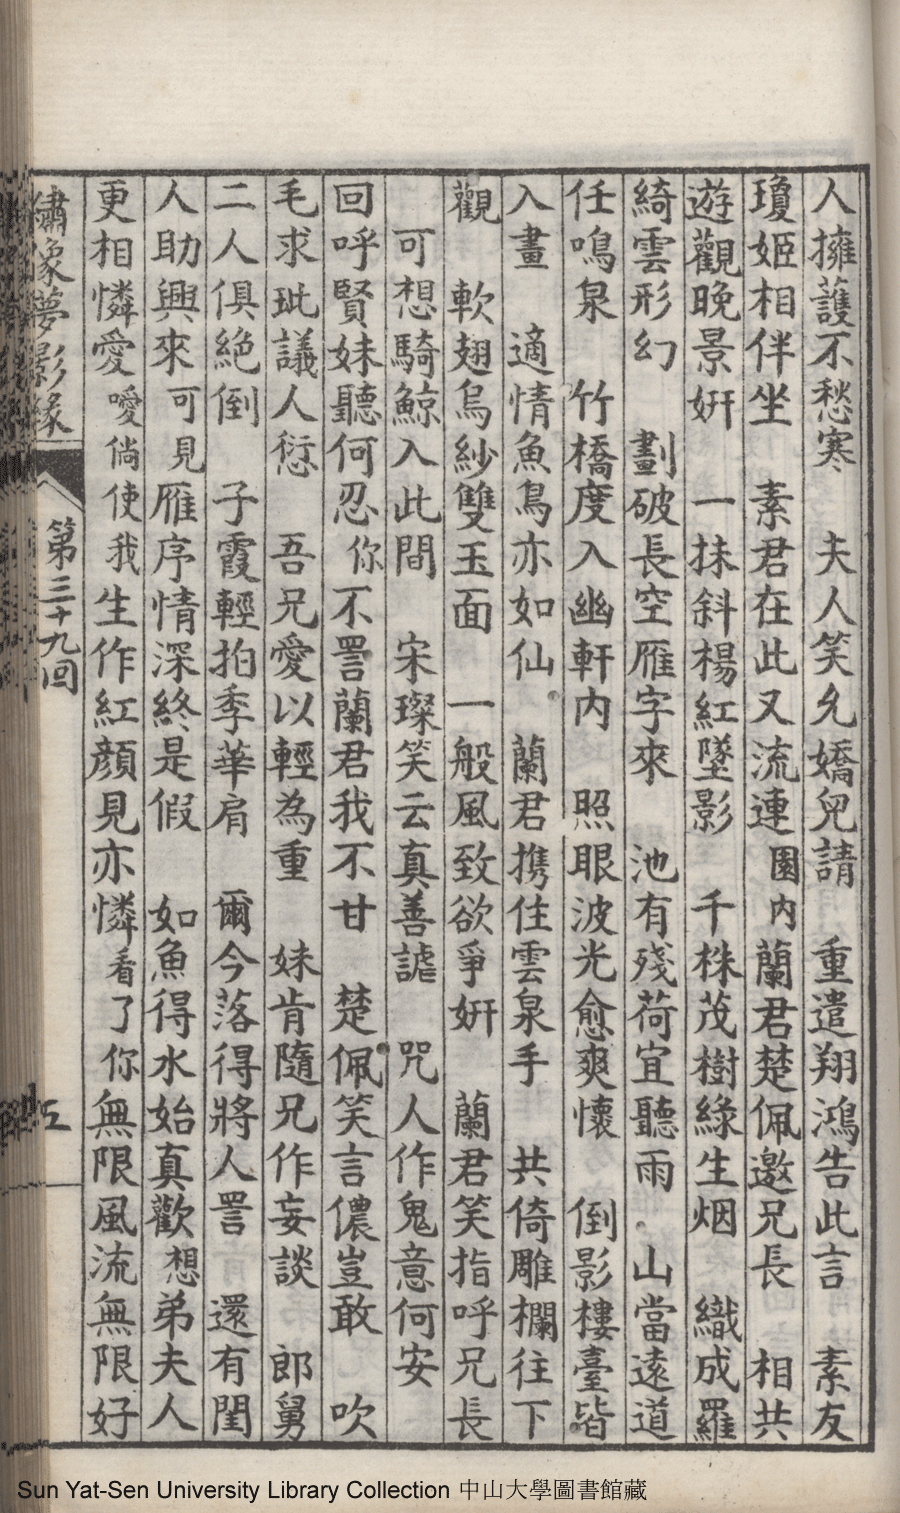 人擁護不愁寒　夫人笑允嬌兒請　重遣翔鴻告此言　素友
瓊姬相伴坐　素君在此又流連　園內蘭君楚佩邀兄長　相共
遊觀晚景姸　一抹斜楊紅墜影　千株茂樹綠生烟　織成羅
綺雲形幻　劃破長空雁字來　池有殘荷宜聽雨　山當遠道
任鳴泉　竹橋度入幽軒內　照眼波光愈爽懷　倒影樓臺皆
入畫　適情魚鳥亦如仙　蘭君攜住雲泉手　共倚雕欄往下
觀　軟翅烏紗雙玉面　一般風致欲爭姸　蘭君笑指呼兄長
可想騎鯨入此間　宋璨笑云真善謔　咒人作鬼意何安
回呼賢妹聽何忍　你不詈蘭君我不甘　楚佩笑言儂豈敢　吹
毛求玼議人愆　吾兄愛以輕為重　妹肯隨兄作妄談　郎舅
二人俱絕倒　子霞輕拍季華肩　爾今落得將人詈　還有閨
人助興來　可見雁序情深終是假　如魚得水始真歡　想弟夫人
更相憐愛　噯倘使我生作紅顏見亦憐　看了你無限風流無限好
繡像夢影緣　第三十九回　五
Sun Yat-Sen University Library Collection 中山大學圖書館藏